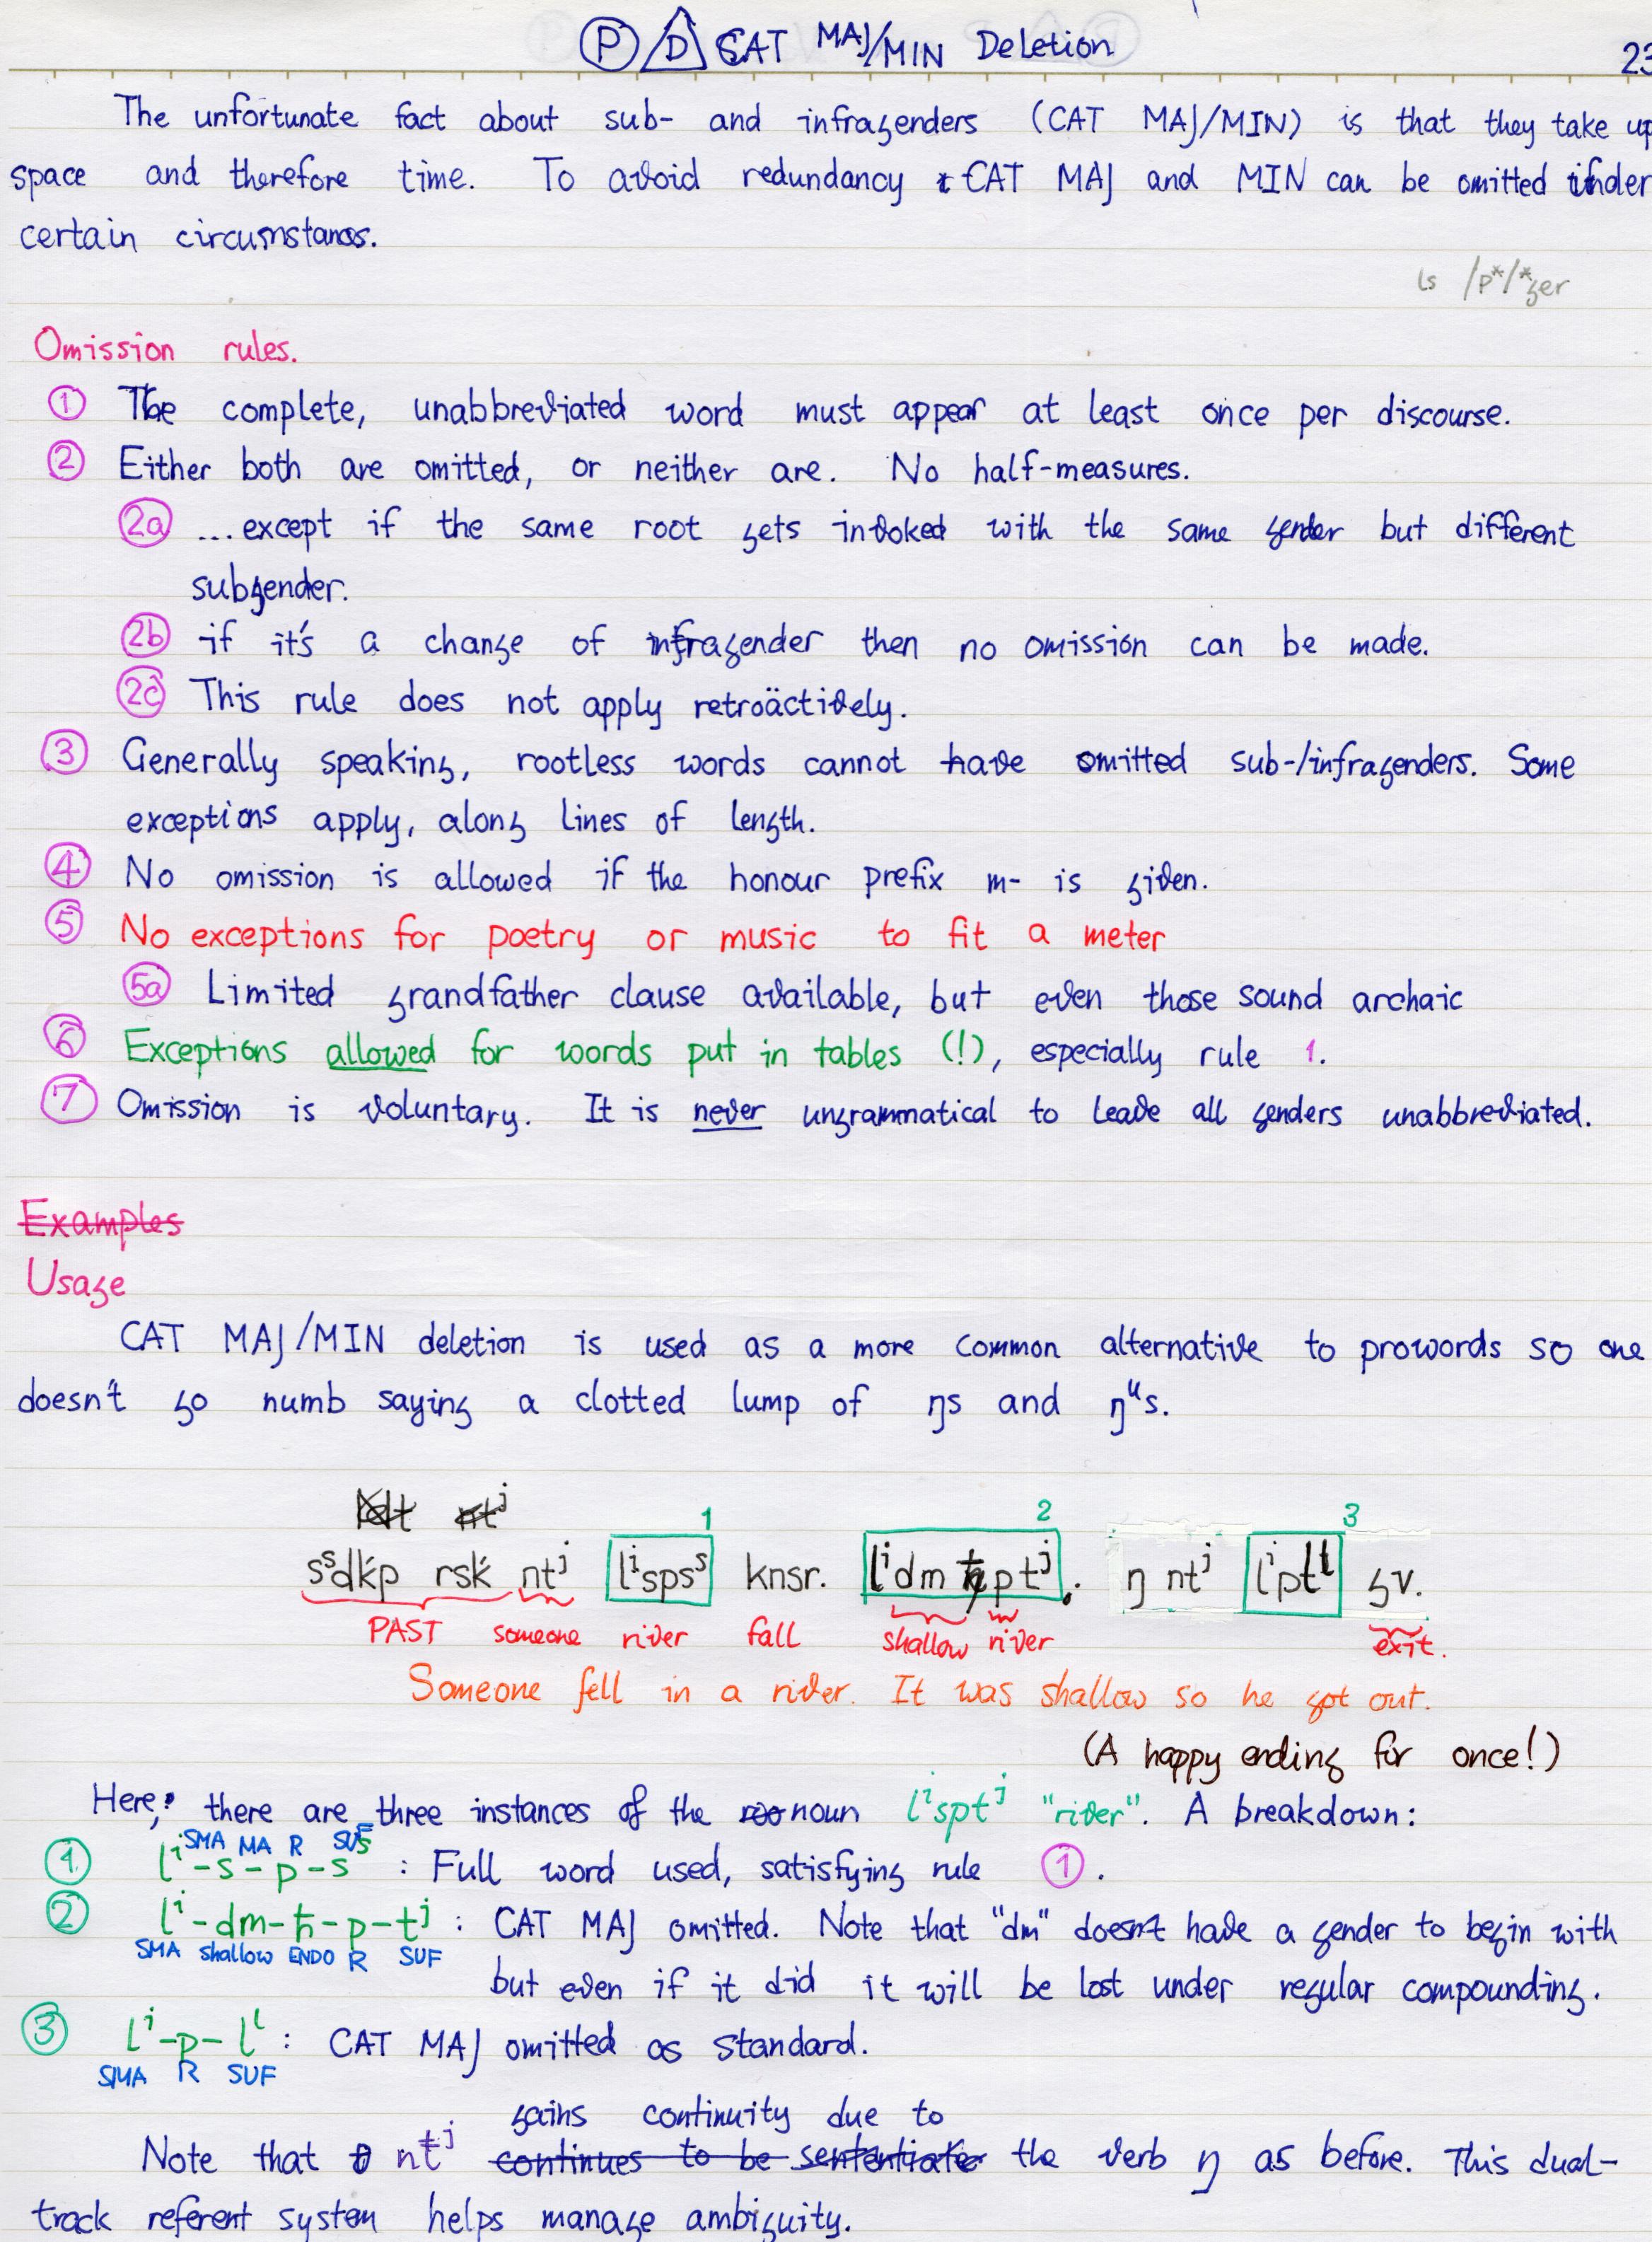 P D CAT MAJ/MIN Deletion 23
The unfortunate fact about sub- and infragenders (CAT MAJ/MIN) is that they take up
space and therefore time. To avoid redundancy CAT MAJ and MIN can be omitted under
certain circumstances.
ls /p*/*ger
Omission rules.
① The complete, unabbreviated word must appear at least once per discourse.
② Either both are omitted, or neither are. No half-measures.
2a ...except if the same root gets invoked with the same gender but different
subgender.
2b if it's a change of infragender then no omission can be made.
2c This rule does not apply retroäctively.
③ Generally speaking, rootless words cannot have omitted sub-/infragenders. Some
exceptions apply, along lines of length.
④ No omission is allowed if the honour prefix m- is given.
⑤ No exceptions for poetry or music to fit a meter
5a Limited grandfather clause available, but even those sound archaic
⑥ Exceptions allowed for words put in tables (!), especially rule 1.
⑦ Omission is voluntary. It is never ungrammatical to leave all genders unabbreviated.
Examples
Usage
CAT MAJ/MIN deletion is used as a more common alternative to prowords so one
doesn't go numb saying a clotted lump of ŋs and ŋᵘs.
ntʲ 1 2 3
sˢdḱp rsḱ ntʲ lⁱspsˢ knsr. lⁱdm ħptʲ. ŋ ntʲ lⁱptˡ gv.
PAST someone river fall shallow river exit.
Someone fell in a river. It was shallow so he got out.
(A happy ending for once!)
Here, there are three instances of the noun lⁱsptʲ "river". A breakdown:
SMA MA R SUF
① lⁱ-s-p-sˢ : Full word used, satisfying rule ①.
② lⁱ-dm-ħ-p-tʲ : CAT MAJ omitted. Note that "dm" doesn't have a gender to begin with
SMA shallow ENDO R SUF
but even if it did it will be lost under regular compounding.
③ lⁱ-p-lˡ : CAT MAJ omitted as standard.
SMA R SUF
gains continuity due to
Note that ntʲ continues to be the verb ŋ as before. This dual-
track referent system helps manage ambiguity.